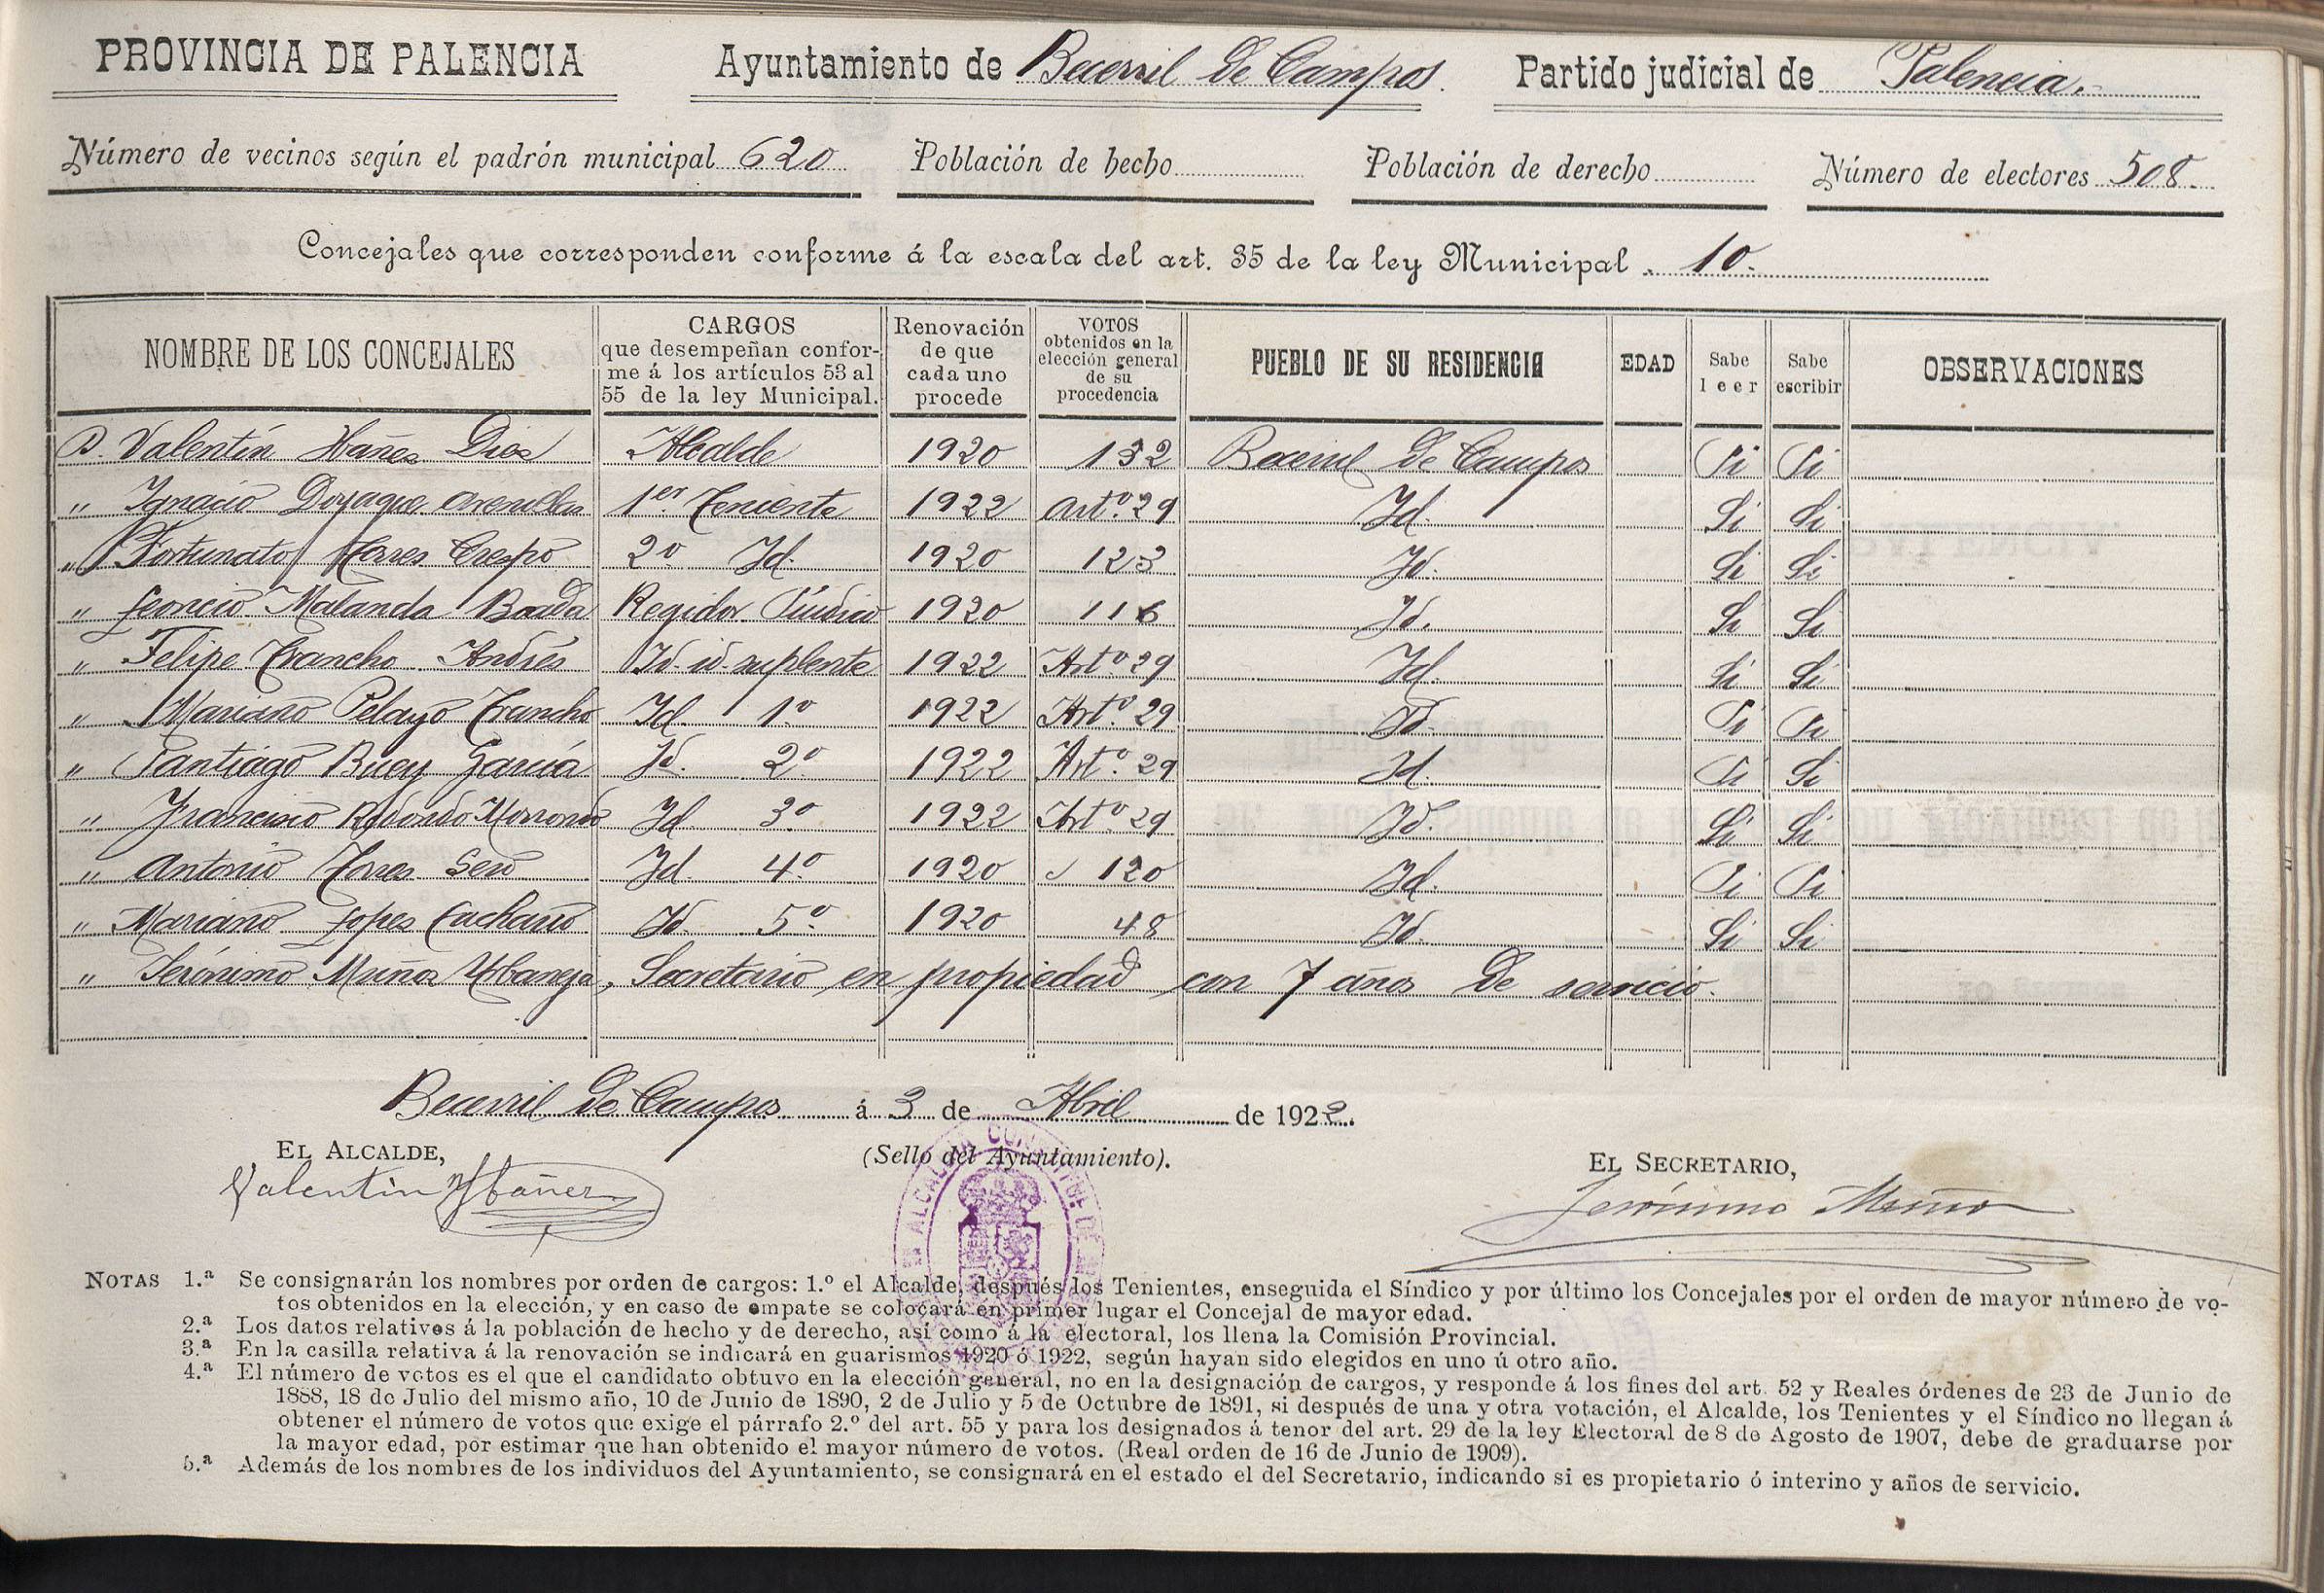 PROVINCIA DE PALENCIA Ayuntamiento de Becerril de Campos. Partido judicial de Palencia.
Número de vecinos según el padrón municipal 620 Población de hecho Población de derecho Número de electores 508.
Concejales que corresponden conforme á la escala del art. 35 de la ley Municipal. 10.
NOMBRE DE LOS CONCEJALES
CARGOS
que desempeñan confor-
me á los artículos 53 al
55 de la ley Municipal.
Renovación
de que
cada uno
procede
VOTOS
obtenidos en la
elección general
de su
procedencia
PUEBLO DE SU RESIDENCIA
EDAD
Sabe
leer
Sabe
escribir
OBSERVACIONES
D. Valentín Ibañes Dies Alcalde 1920 132 Becerril de Campos Si Si
" Ignacio Doyague Arenillas 1er Teniente 1922 Artº 29 Id. Si Si
" Fortunato Torres Crespo 2º Id. 1920 123 Id. Si Si
" Leoncio Malanda Boada Regidor Síndico 1920 116 Id. Si Si
" Felipe Trancho Andrés Id. id. suplente 1922 Artº 29 Id. Si Si
" Mariano Pelayo Trancho Id. 1º 1922 Artº. 29 Id. Si Si
" Santiago Buey García Id. 2º 1922 Artº. 29 Id. Si Si
" Francisco Redondo Morrondo Id 3º 1922 Artº 29 Id. Si Si
" Antonio Torres Id. 4º 1920 120 Id. Si Si
" Mariano Lopes Id. 5º 1920 48 Id. Si Si
" Jerónimo Muños Secretario en propiedad con 7 años de servicio.
Becerril de Campos á 3 de Abril de 1922.
EL ALCALDE, (Sello del Ayuntamiento). EL SECRETARIO,
Valentin Ybañez Jerónimo Muños
NOTAS 1.ª Se consignarán los nombres por orden de cargos: 1.º el Alcalde, después los Tenientes, enseguida el Síndico y por último los Concejales por el orden de mayor número de vo-
tos obtenidos en la elección, y en caso de empate se colocará en primer lugar el Concejal de mayor edad.
2.ª Los datos relativos á la población de hecho y de derecho, así como á la electoral, los llena la Comisión Provincial.
3.ª En la casilla relativa á la renovación se indicará en guarismos 1920 ó 1922, según hayan sido elegidos en uno ú otro año.
4.ª El número de votos es el que el candidato obtuvo en la elección general, no en la designación de cargos, y responde á los fines del art. 52 y Reales órdenes de 23 de Junio de
1888, 18 de Julio del mismo año, 10 de Junio de 1890, 2 de Julio y 5 de Octubre de 1891, si después de una y otra votación, el Alcalde, los Tenientes y el Síndico no llegan á
obtener el número de votos que exige el párrafo 2.º del art. 55 y para los designados á tenor del art. 29 de la ley Electoral de 8 de Agosto de 1907, debe de graduarse por
la mayor edad, por estimar que han obtenido el mayor número de votos. (Real orden de 16 de Junio de 1909).
5.ª Además de los nombres de los individuos del Ayuntamiento, se consignará en el estado el del Secretario, indicando si es propietario ó interino y años de servicio.